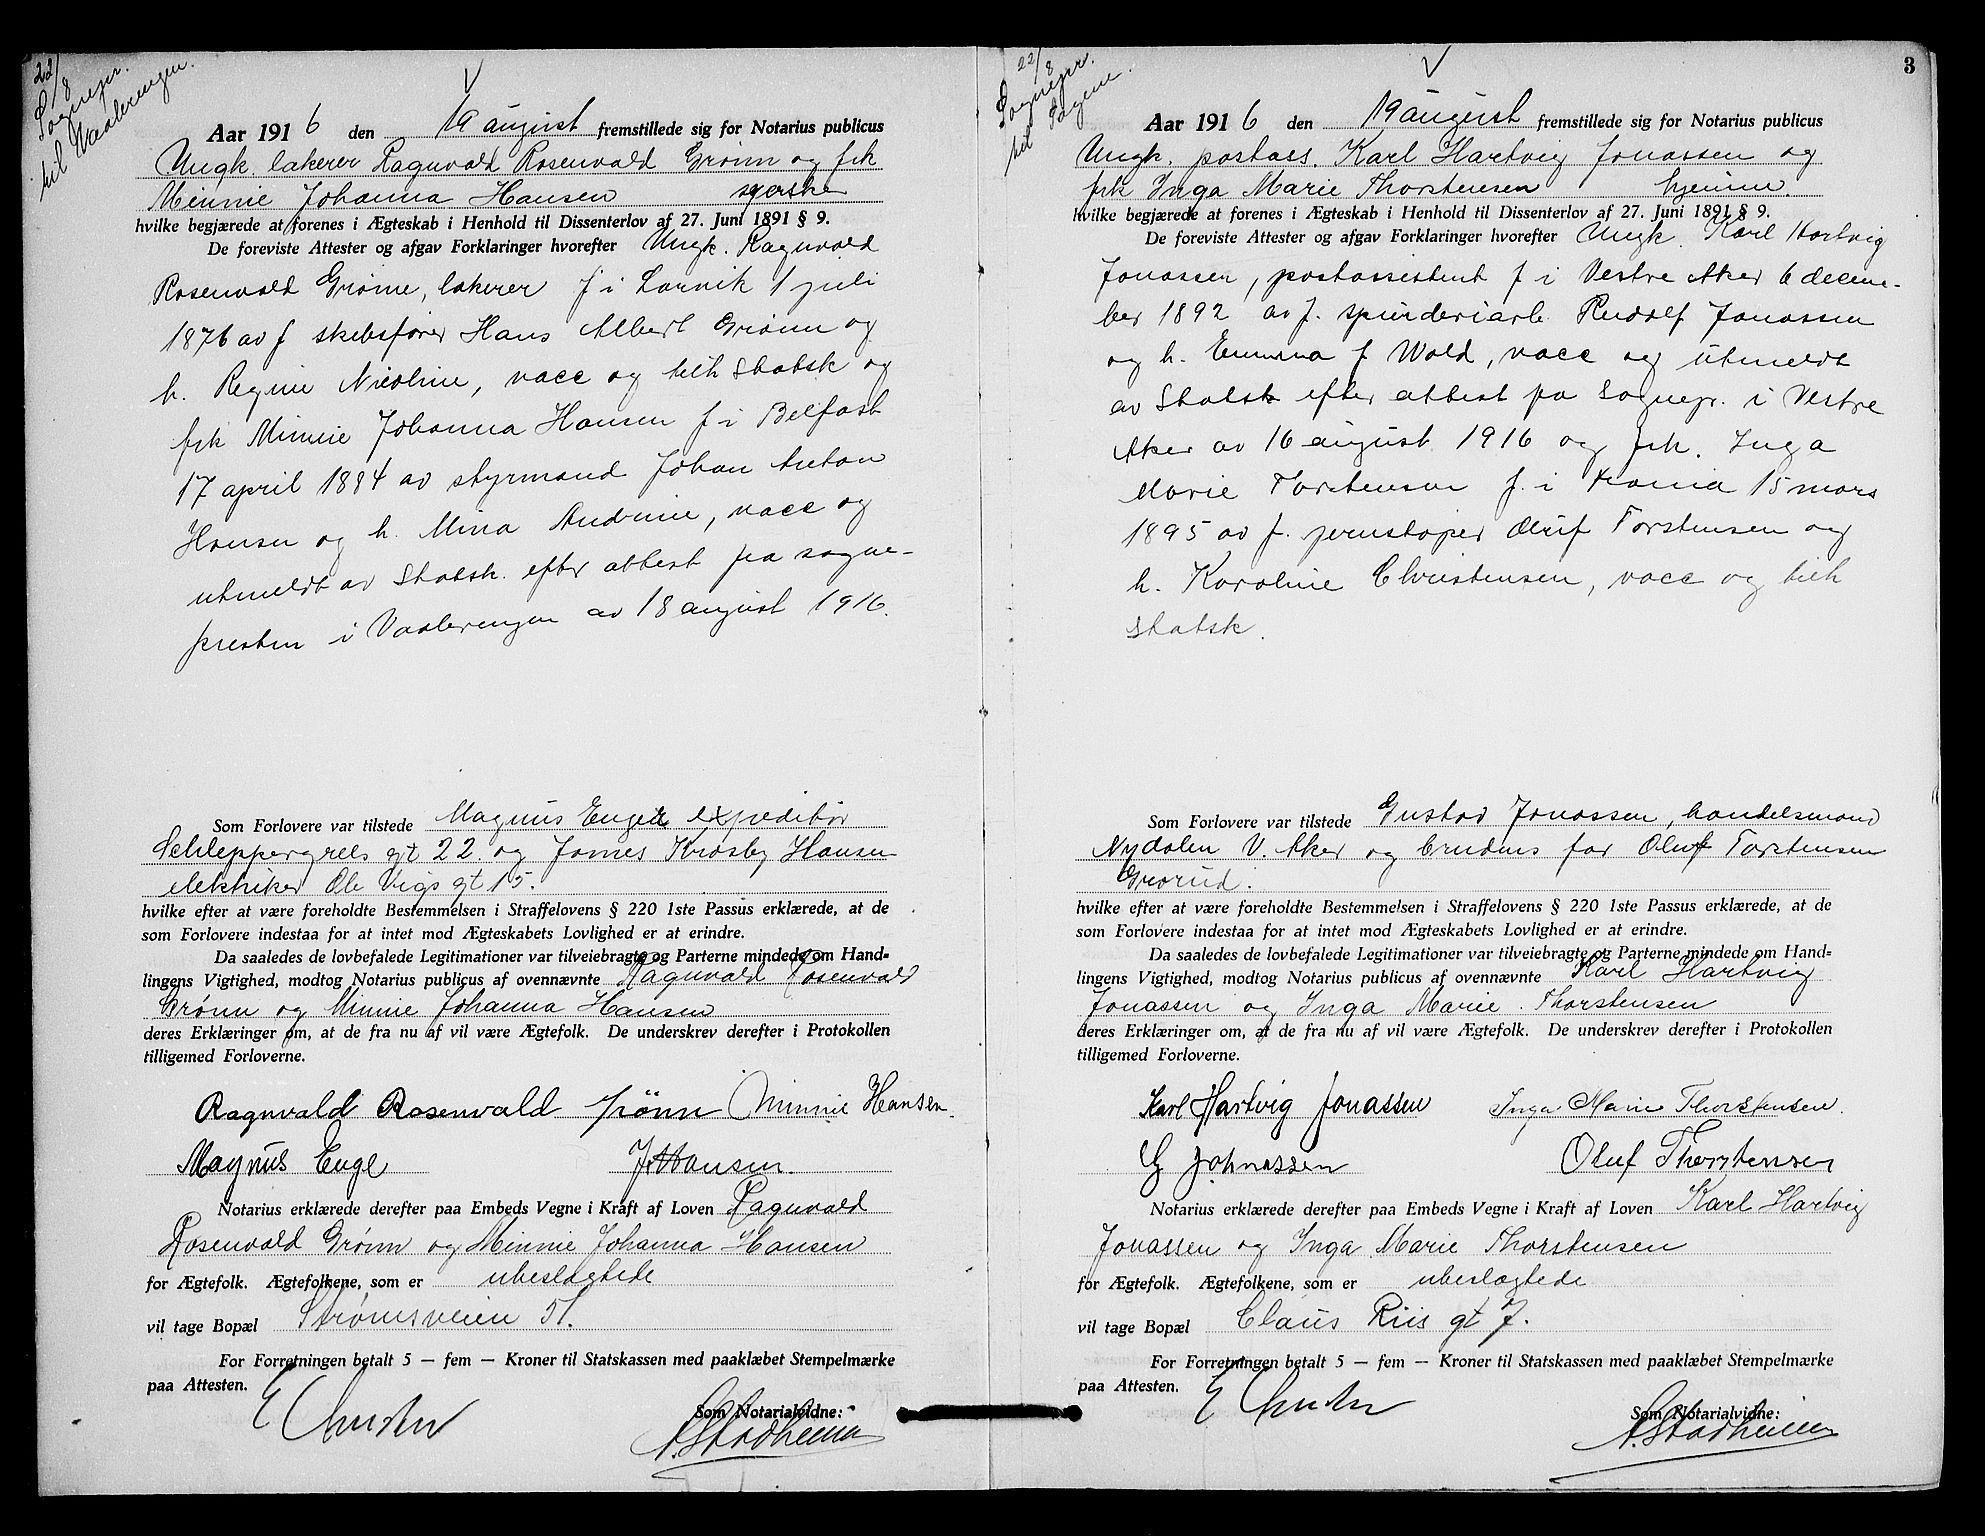 22/8
Sognepr.
til Vaalerengen.
Aar 1916 den 19 august fremstillede sig for Notarius publicus
Ungk. lakerer Ragnvald Rosenvald Grønn og frk
Minnie Johanna Hansen syerske
hvilke begjærede at forenes i Ægteskab i Henhold til Dissenterlov af 27. Juni 1891 § 9.
De foreviste Attester og afgav Forklaringer hvorefter Ungk. Ragnvald
Rosenvald Grønn, lakerer f i Larvik 1 juli
1876 av f skibsfører Hans Albert Grønn og
h. Regine Nicoline, vacc og tilh Statsk og
frk Minnie Johanna Hansen f i Belfast
17 april 1884 av styrmand Johan Anton
Hansen og h. Mina Andrine, vacc og
utmeldt av Statsk. efter attest fra sogne-
presten i Vaalerengen av 18 august 1916.
Som Forlovere var tilstede Magnus Engel expeditør
Schleppergrels gt 22. og James Krosby Hansen
elektriker Ole Vigs gt 15.
hvilke efter at være foreholdte Bestemmelsen i Straffelovens § 220 1ste Passus erklærede, at de
som Forlovere indestaa for at intet mod Ægteskabets Lovlighed er at erindre.
Da saaledes de lovbefalede Legitimationer var tilveiebragte og Parterne mindede om Hand-
lingens Vigtighed, modtog Notarius publicus af ovennævnte Ragnvald Rosenvald
Grønn og Minnie Johanna Hansen
deres Erklæringer om, at de fra nu af vil være Ægtefolk. De underskrev derefter i Protokollen
tilligemed Forloverne.
Ragnvald Rosenvald Grönn Minnie Hansen.
Magnus Engl J. Hansen.
Notarius erklærede derefter paa Embeds Vegne i Kraft af Loven Ragnvald
Rosenvald Grønn og Minnie Johanna Hansen
for Ægtefolk. Ægtefolkene, som er ubeslægtede
vil tage Bopæl Strømsveien 51.
For Forretningen betalt 5 — fem — Kroner til Statskassen med paaklæbet Stempelmærke
paa Attesten.
Som Notarialvidne:
A. Stadheim
3
22/8
Sognepr.
til Fagene.
Aar 1916 den 19 august fremstillede sig for Notarius publicus
Ungk. postass. Karl Hartvig Jonassen og
frk Inga Marie Thorstensen hjemme.
hvilke begjærede at forenes i Ægteskab i Henhold til Dissenterlov af 27. Juni 1891 § 9.
De foreviste Attester og afgav Forklaringer hvorefter Ungk. Karl Hartvig
Jonassen, postassistent f i Vestre Aker 6 decem-
ber 1892 av f. spinderiarb. Rudolf Jonassen
og h. Emma f Wold, vacc og utmeldt
av Statsk efter attest fra Sognepr. i Vestre
Aker av 16 august 1916 og frk. Inga
Marie Torstensen f. i Krania 15 mars
1895 av f. jernstøper Oluf Torstensen og
h. Karoline Christensen, vacc og tilh
Statsk.
Som Forlovere var tilstede Gustav Jonassen, handelsmand
Nydalen V. Aker og brudens far Oluf Torstensen
Grorud.
hvilke efter at være foreholdte Bestemmelsen i Straffelovens § 220 1ste Passus erklærede, at de
som Forlovere indestaa for at intet mod Ægteskabets Lovlighed er at erindre.
Da saaledes de lovbefalede Legitimationer var tilveiebragte og Parterne mindede om Hand-
lingens Vigtighed, modtog Notarius publicus af ovennævnte Karl Hartvig
Jonassen og Inga Marie Thorstensen
deres Erklæringer om, at de fra nu af vil være Ægtefolk. De underskrev derefter i Protokollen
tilligemed Forloverne.
Karl Hartvig Jonassen Inga Marie Thorstensen.
G Johnassen Oluf Thorstensen
Notarius erklærede derefter paa Embeds Vegne i Kraft af Loven Karl Hartvig
Jonassen og Inga Marie Thorstensen
for Ægtefolk. Ægtefolkene, som er ubeslægtede
vil tage Bopæl Claus Riis gt 7.
For Forretningen betalt 5 — fem — Kroner til Statskassen med paaklæbet Stempelmærke
paa Attesten.
Som Notarialvidne:
A. Stadheim